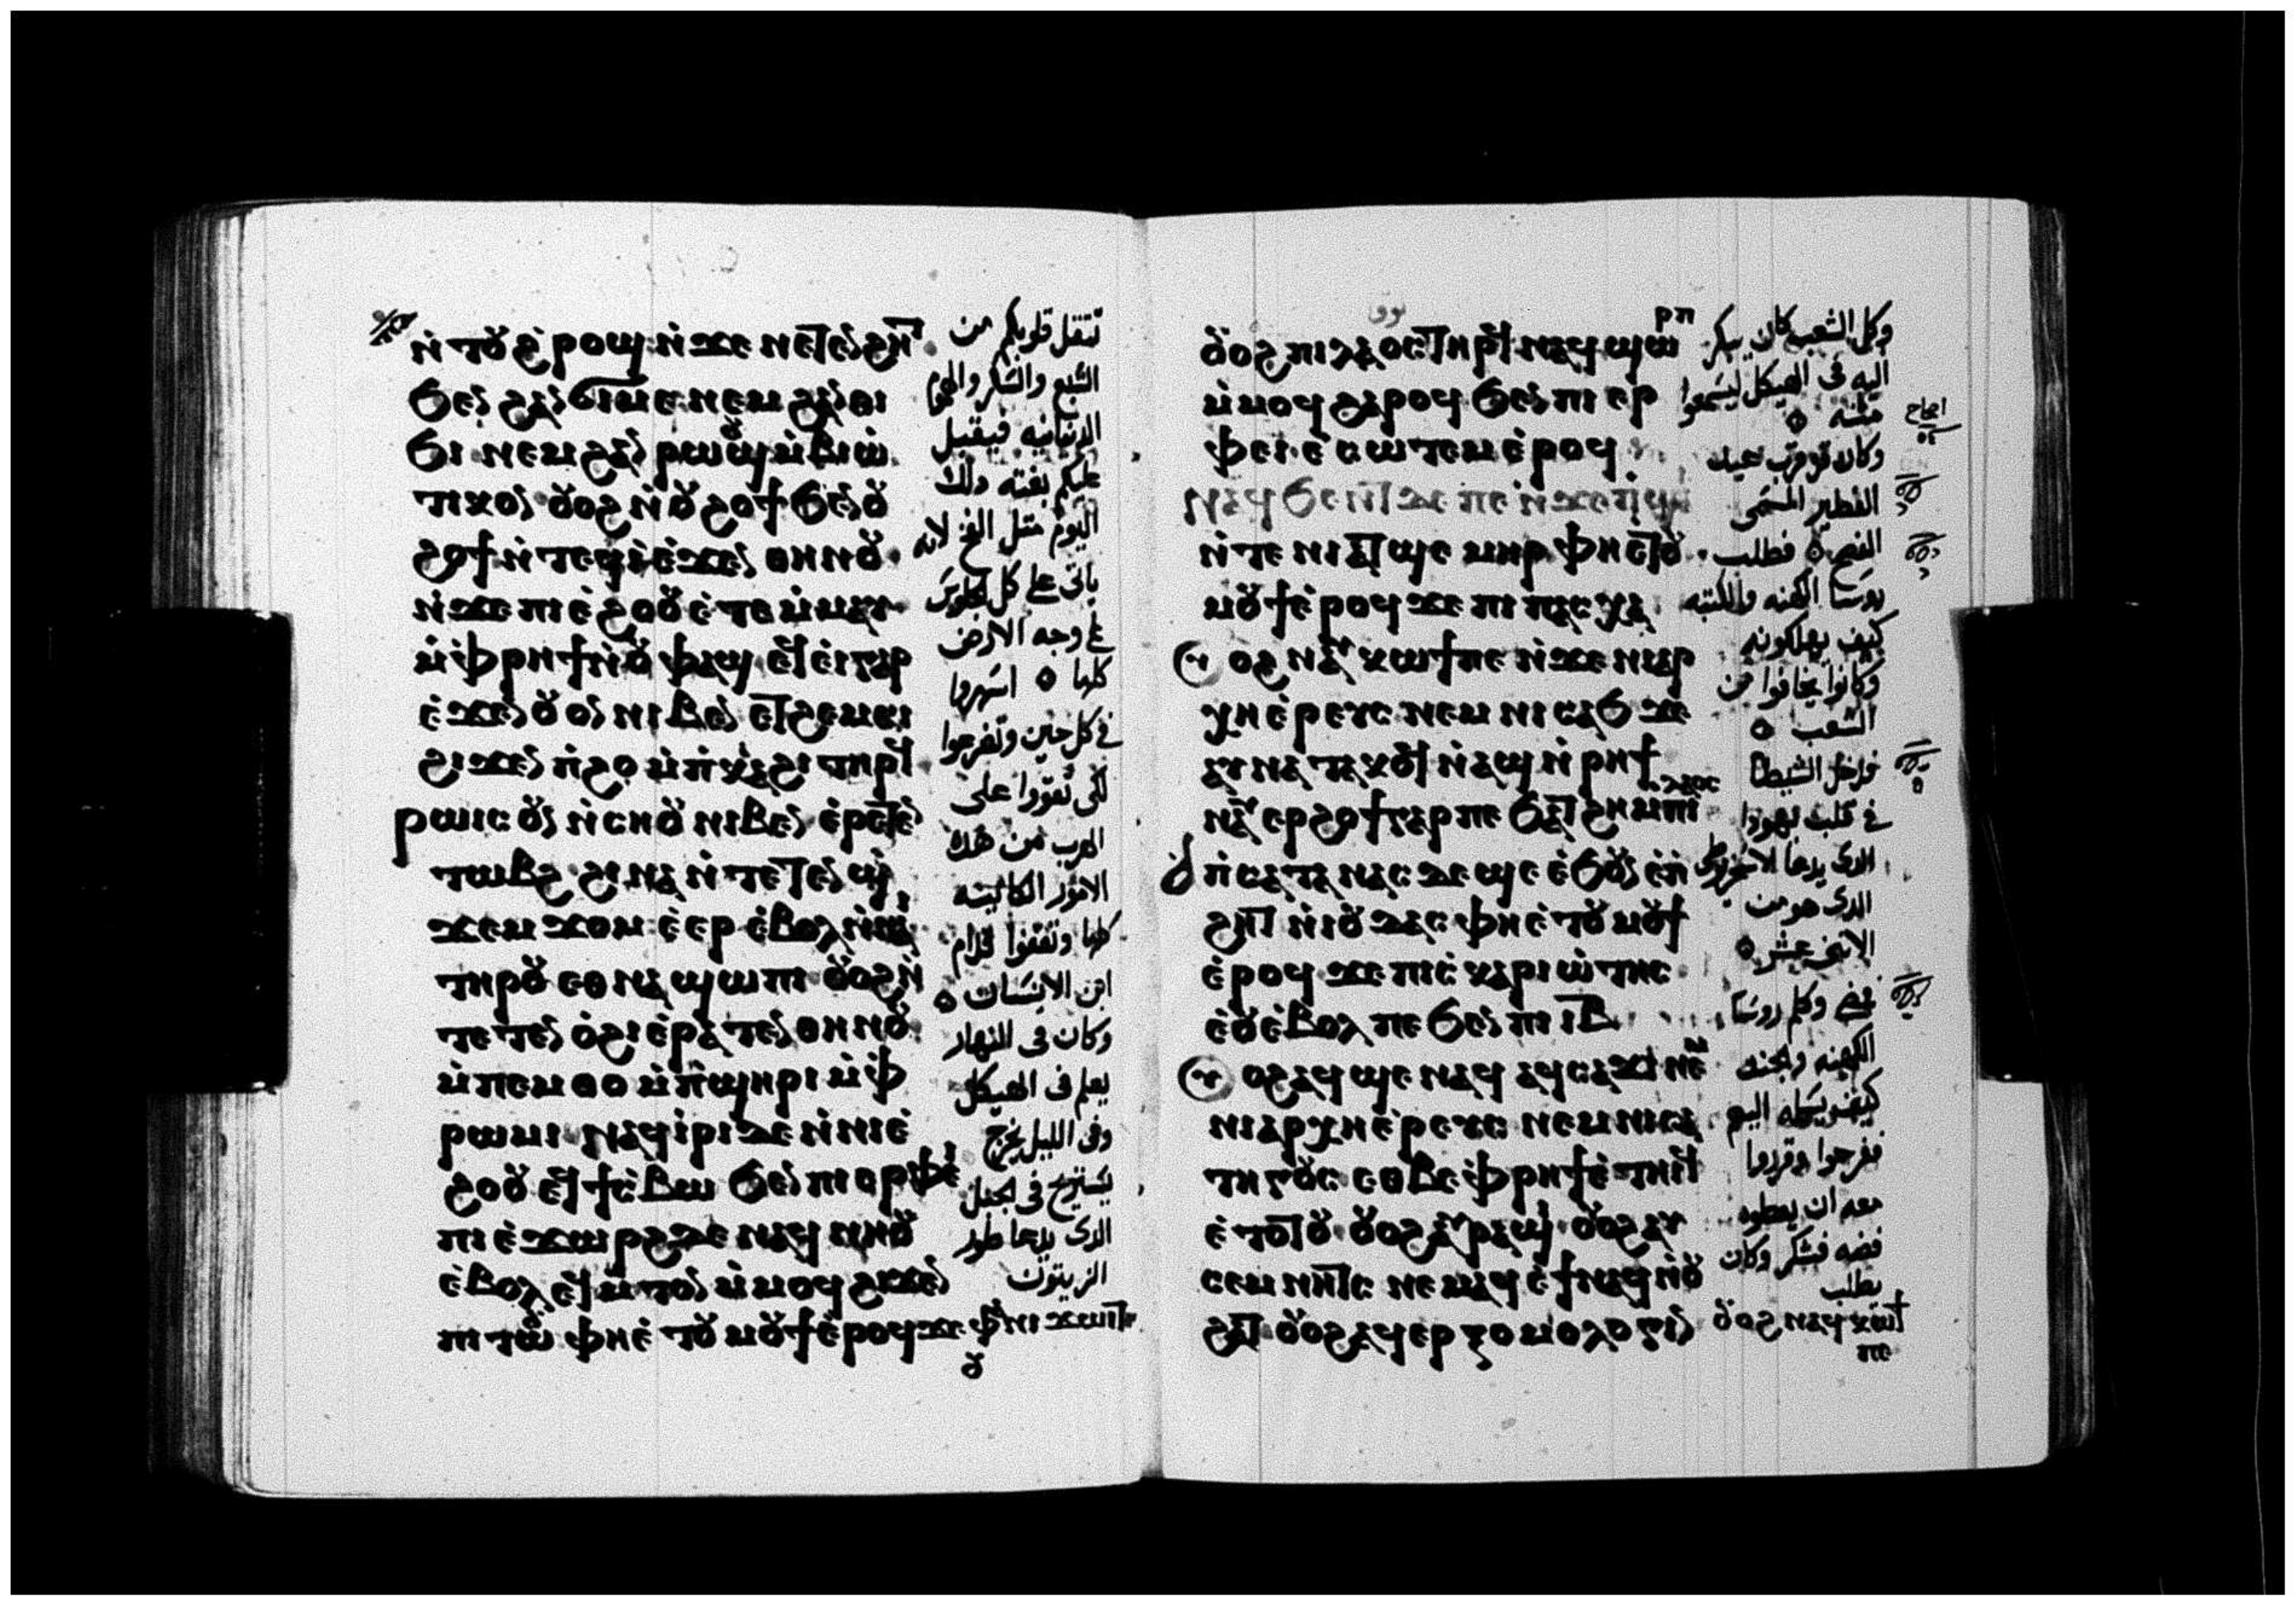 ⲛ̀ⲧⲟⲩϩ̀ⲣⲟϣ ⲛ̀ϫⲉ ⲛⲉⲧⲉⲛϩⲏⲧ
ϧⲉⲛ ⲛⲉⲙ ϩⲁⲛⲑⲓ
ϧⲓ ⲛⲉⲙ ϩⲁⲛ ⲣⲱⲟⲩϣ ⲙ̀ⲃⲓⲱ̀
ⲧⲓⲕⲟⲛ ⲟⲩⲟϩ ⲛ̀ⲟⲩϩⲟϯ ϧⲉⲛ ⲟⲩ
ϩⲟϯ ⲛ̀ⲧⲉϥⲓ̀ ⲉ̀ϫⲉⲛ ⲑⲏⲛⲟⲩ
ⲛ̀ϫⲉ ⲡⲓⲉ̀ϩⲟⲟⲩ ⲉ̀ⲧⲉ ⲙ̀ⲙⲁⲩ
ⲙ̀ⲫ̀ⲣⲏϯ ⲛ̀ⲟⲩⲫⲁϣ ⲉϥⲉ̀ⲓ̀ ⲅⲁⲣ
ⲉ̀ϫⲉⲛ ⲟⲩⲟⲛ ⲛⲓⲃⲉⲛ ⲉⲧϩⲉⲙⲥⲓ
ϩⲓϫⲉⲛ ⲡ̀ϩⲟ ⲙ̀ⲡ̀ⲕⲁϩⲓ ⲧⲏⲣϥ
ⲣⲱⲓⲥ ⲟⲩⲛ ⲛ̀ⲥⲏⲟⲩ ⲛⲓⲃⲉⲛ ⲉ̀ⲣⲉⲧⲉⲛ
ⲧⲱⲃϩ ϩⲓⲛⲁ ⲛ̀ⲧⲉⲧⲉⲛϣ̀
ϫⲉⲙϫⲟⲙ ⲉ̀ⲉⲣ ⲉ̀ⲃⲟⲗ ⲛ̀ⲛⲁⲓ
ⲧⲏⲣⲟⲩ ⲉⲑⲛⲁϣⲱⲡⲓ ⲟⲩⲟϩ ⲛ̀
ⲧⲉⲧⲉⲛ ⲟ̀ϩⲓ ⲉ̀ⲣⲁⲧⲉⲛ ⲑⲏⲛⲟⲩ
ⲙ̀ⲡⲉⲙⲑⲟ ⲙ̀ⲡ̀ϣⲏⲣⲓ ⲙ̀ⲫ̀
ⲣⲱⲙⲓ ⲛⲁϥⲓ̀ⲣⲓ ⲇⲉ ⲛ̀ⲛⲓⲉ̀
ϩⲟⲟⲩ ⲉϥϯⲥ̀ⲃⲱ ϧⲉⲛ ⲡⲓⲉⲣⲫⲉⲓ
ⲡⲓⲉ̀ϫⲱⲣϩ ⲇⲉ ⲛⲁϥⲛⲏⲟⲩ
ⲉ̀ⲃⲟⲗ ⲉϥⲙ̀ⲧⲟⲛ ⲙ̀ⲙⲟϥ ϩⲓϫⲉⲛ
ⲡⲓⲧⲱⲟⲩ ⲫⲏⲉ̀ⲧⲟⲩⲙⲟⲩϯ ⲉ̀ⲣⲟϥ ϫⲉ ⲫⲁⲛⲓϫⲱⲓⲧ
ⲟⲩ
تثقل قلوبكم من
الشبع والسكر والهموم
الدنيانيه فيقبل
عليكم بغته ذلك
اليوم مثل الفخ لانه
ياتى على كل جلوس
على وجه الارض
كلها ٥ اسهروا
فى كل حين وتضرعوا
لكى تقووا على
الهرب من هذه
الامور الكائنه
كلها وتقفوا قدام
ابن الانسان ٥
وكان فى النهار
يعلم فى الهيكل
وفى الليل يخرج
يستريح فى الجبل
الذى يدعا طور
الزيتون
ⲣⲡ
ⲟⲩⲟϩ ⲡⲓⲗⲁⲟⲥ ⲧⲏⲣϥ ⲛⲁϥϣⲱ
ⲙ̀ⲙⲟϥ ϩⲁⲣⲟϥ ϧⲉⲛ ⲡⲓⲉⲣ
ⲫⲉⲓ ⲉ̀ⲥⲱⲧⲉⲙ ⲉ̀ⲣⲟϥ
ⲛⲁϥϧⲉⲛⲧ ⲇⲉ ⲡⲉ ⲛ̀ϫⲉ ⲡ̀ϣⲁⲓ
ⲛ̀ⲧⲉ ⲛⲓⲁⲧϣⲉⲙⲏⲣ ⲫⲏⲉⲧⲟⲩ
ⲙⲟⲩϯ ⲉ̀ⲣⲟϥ ϫⲉ ⲡⲓⲡⲁⲥⲭⲁ
ⲟϩ ⲛⲁⲩⲕⲱϯ ⲡⲉ ⲛ̀ϫⲉ ⲛⲓⲁⲣ
ⲭⲏⲉ̀ⲣⲉⲩⲥ ⲛⲉⲙ ⲛⲓⲥⲁϧ ϫⲉ
ⲁⲩⲛⲁⲧⲁⲕⲟϥ ⲛ̀ⲁϣ ⲛ̀ⲣⲏϯ
ⲛⲁⲩⲉⲣϩⲟϯ ⲅⲁⲣ ⲡⲉ ϧⲁⲧϩⲏ ⲙⲡⲓⲗⲁⲟⲥ
ⲡ̀ⲥⲁⲧⲁⲛⲁⲥ ⲇⲉ ϣⲉ ⲉ̀ϧⲟⲩⲛ ⲉ̀ⲡ̀
ϩⲏⲧ ⲛ̀ⲓⲟⲩⲇⲁⲥ ⲫⲏⲉ̀ⲧⲟⲩⲙⲟⲩϯ
ⲉ̀ⲣⲟϥ ϫⲉ ⲡⲓⲥ̀ⲕⲁⲣⲓⲱ̀ⲧⲏⲥ
ⲉ̀ⲟⲩⲉ̀ⲃⲟⲗ ⲡⲉ ϧⲉⲛ ⲡⲓⲓⲃ
ⲟϩ ⲁϥϣⲉ ⲛⲁϥ ⲁϥⲥⲁϫⲓ ⲛⲉⲙ
ⲛⲓⲁⲣⲭⲏⲉ̀ⲣⲉⲩⲥ ⲛⲉⲙ ⲛⲓⲥⲁ
ⲧⲏⲅⲟⲩⲥ ⲉⲑⲃⲉ ⲫ̀ⲣⲏϯ ⲉ̀ⲧⲏⲓϥ
ⲉ̀ⲧⲟⲧⲟⲩ ⲟⲩⲟϩ ⲁⲩⲣⲁϣⲓ ⲟⲩⲟϩ ⲁⲩ
ⲥⲉⲙⲛⲏⲧⲥ ⲛⲉⲙⲁϥ ⲉ̀ϯ ⲛⲁϥ ⲛ̀ⲟⲩ
ϩⲁⲧ ⲟⲩⲟϩ ⲁϥⲉⲣⲝⲟⲙⲟⲗⲟⲅⲓⲛ ⲟⲩⲟϩ ⲛⲁϥⲕⲱϯ
ⲡⲉ
وكل الشعب كان يبكر
اليه فى الهيكل ليسمعوا
منه ٥
وكان قد قرب عيد
الفطير المسمى
الفصح ٥ فطلب
روسا الكهنه والكتبه
كيف يهلكونه
وكانوا يخافوا من
الشعب ٥
فدخل الشيطان
فى قلب يهودا
الذى يدعا الاسخريوطى
الذى هو من
الاثنى عشر ٥
فمضى وكلم روسا
الكهنه والجند
كيف يسلمه اليهم
ففرحوا وقرروا
معه ان يعطوه
فضه فشكر وكان
يطلب